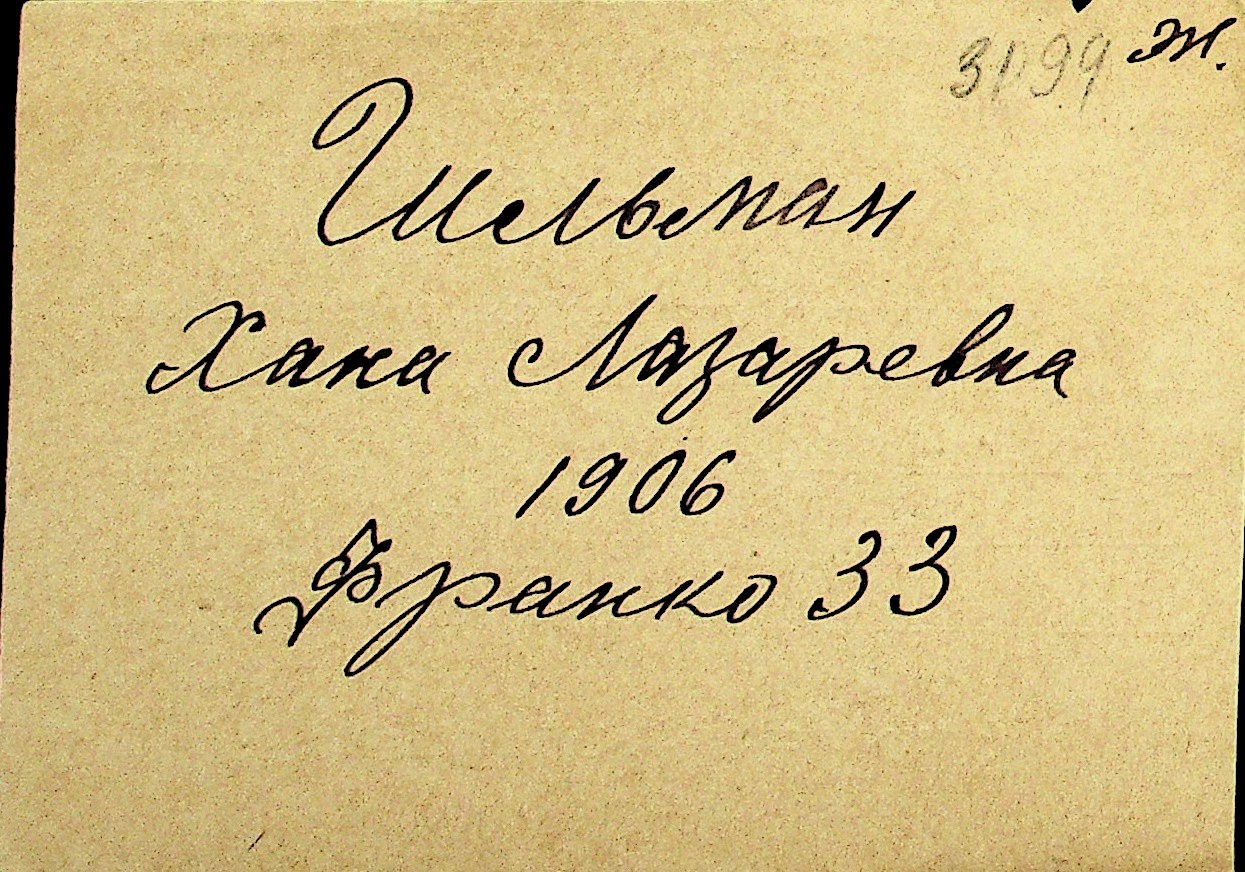 3199 ж.
Шельман
Хана Лазаревна
1906
Франко 33